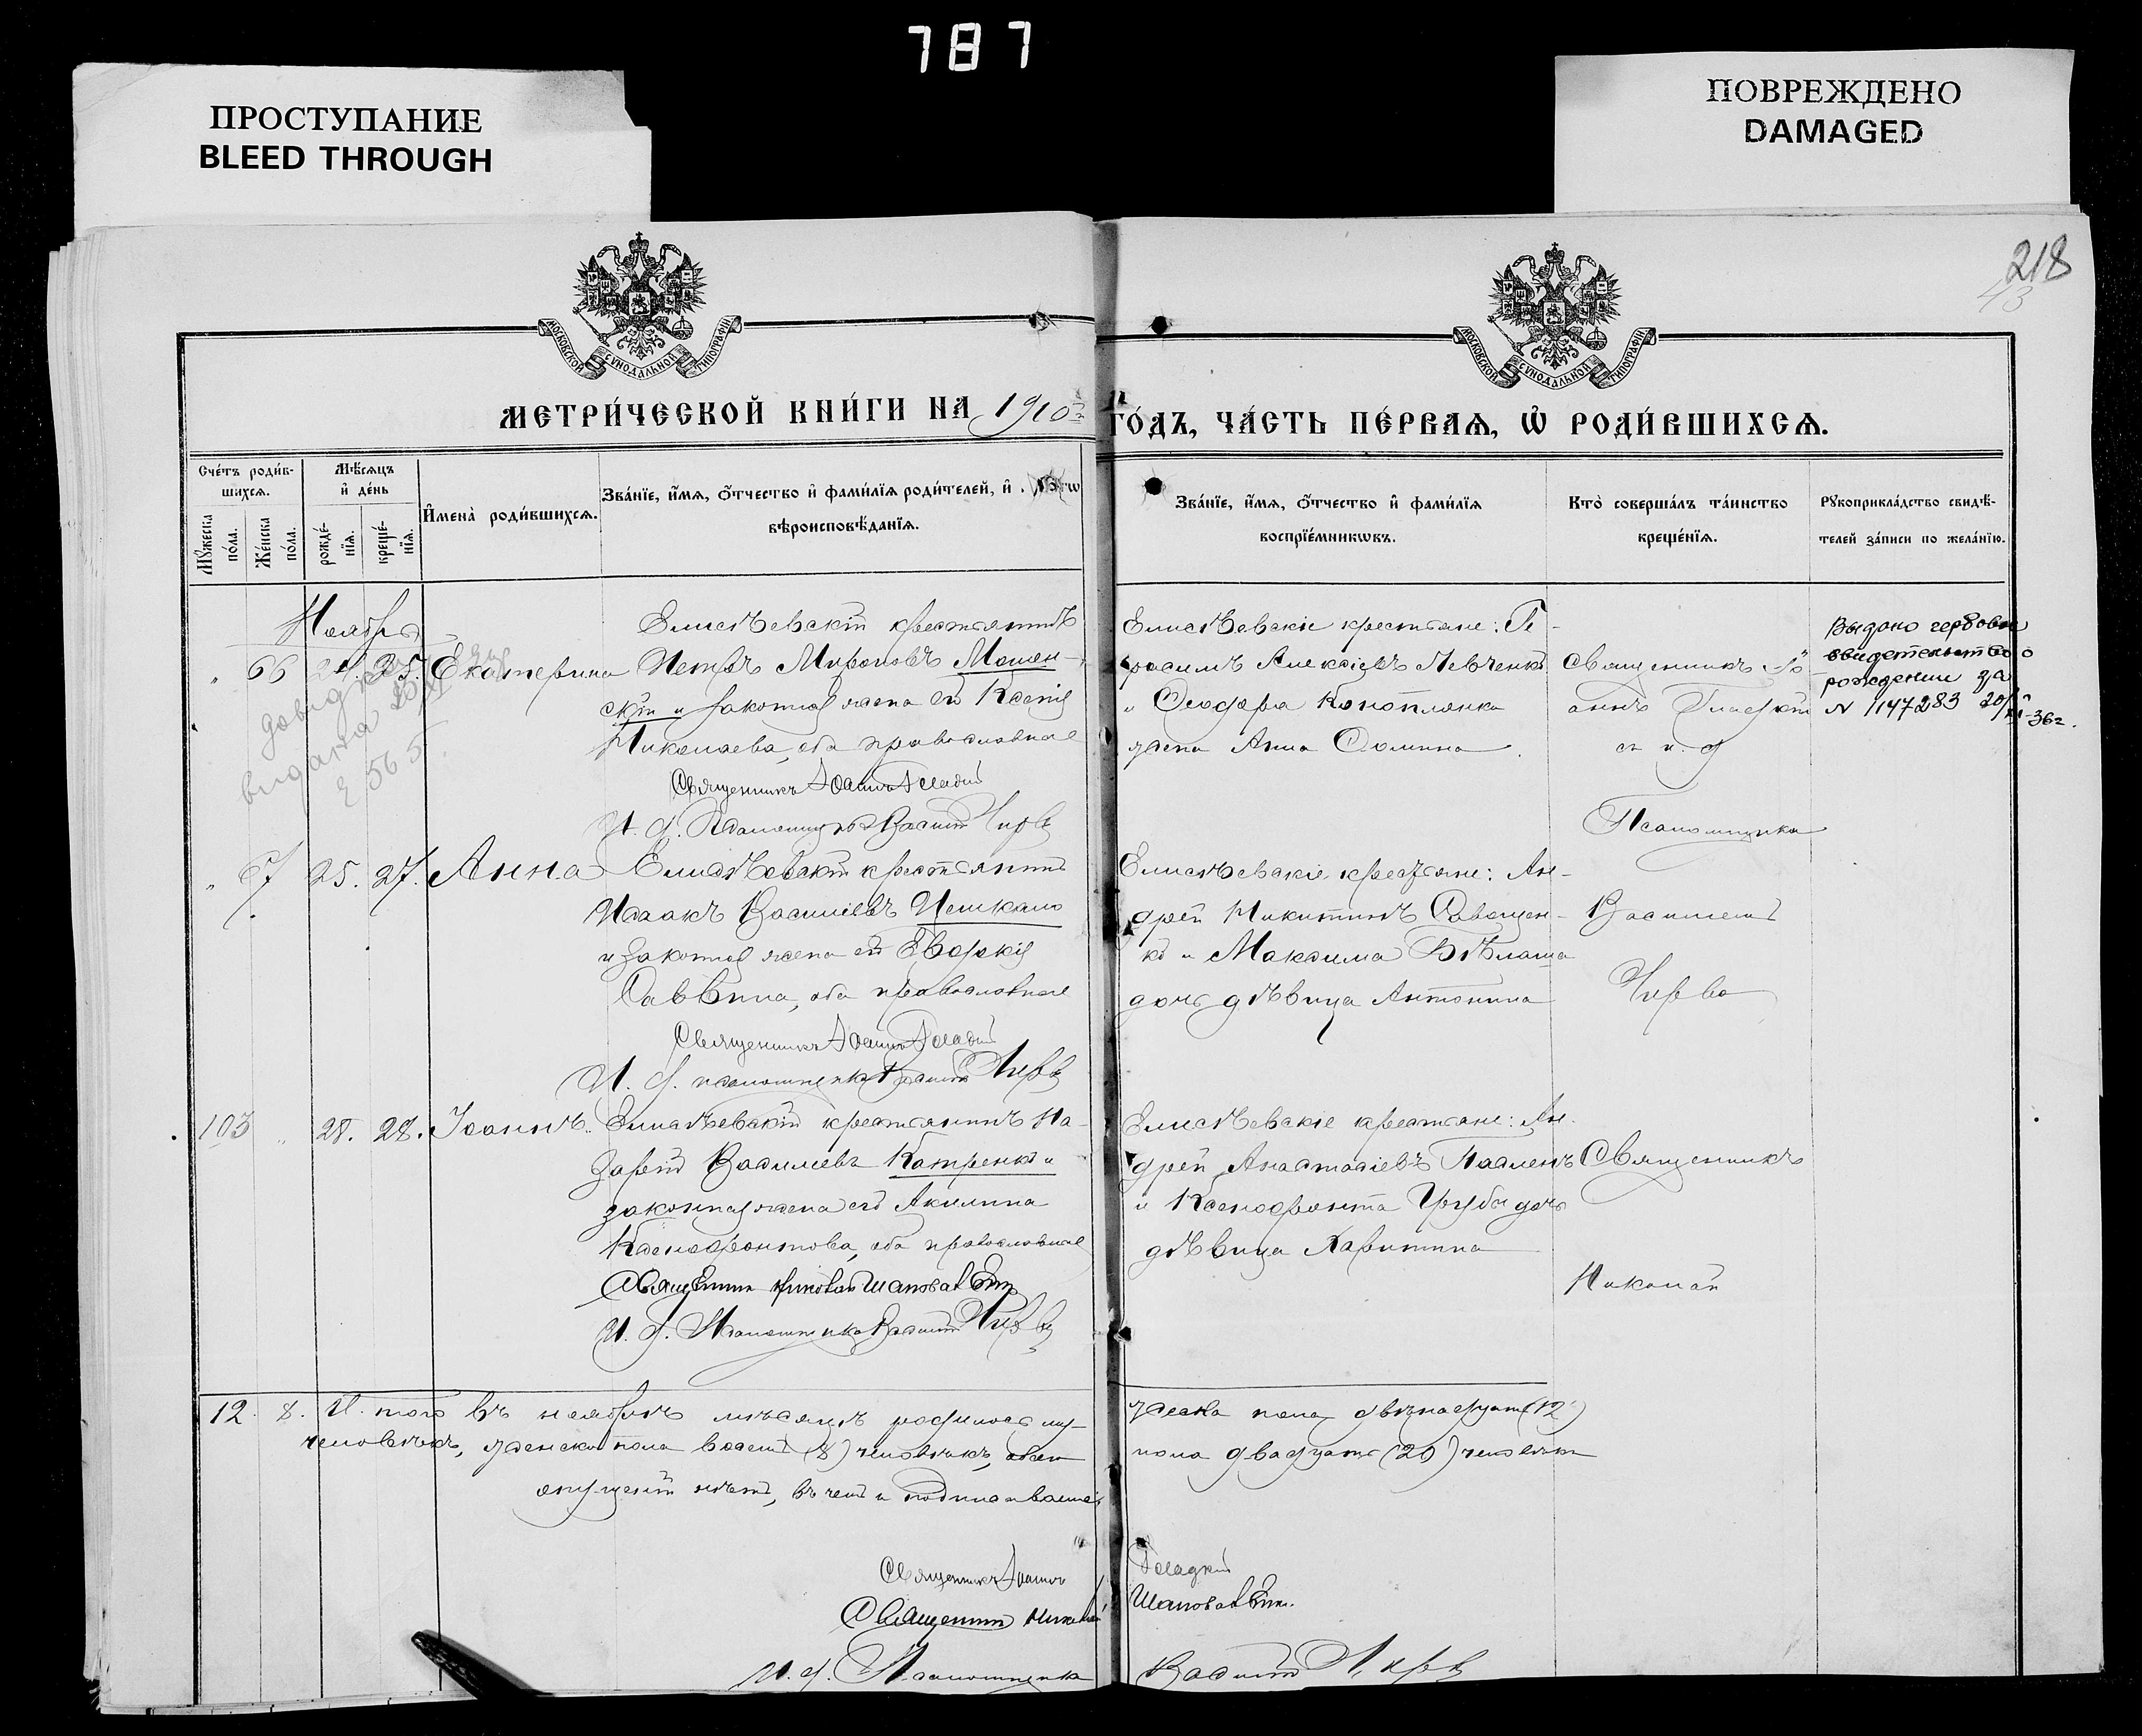 787
ПРОСТУПАНИЕ
BLEED THROUGH
ПОВРЕЖДЕНО
DAMAGED
218
МОСКОВСКОЙ СѴНОДАЛЬНОЙ ТИПОГРАФІИ
МОСКОВСКОЙ СѴНОДАЛЬНОЙ ТИПОГРАФІИ
МЕТРИ́ЧЕСКОЙ КНИ́ГИ НА 1910 ГО́ДЪ, ЧА́СТЬ ПЕ́РВАѦ, Ѡ҆ РОДИ́ВШИХСѦ.
Сче́тъ роди́в-
шихсѧ.
Мꙋжеска по́ла.
Же́нска по́ла.
Мѣ́сѧцъ
и҆ де́нь
рожде́-
нїѧ.
креще́-
нїѧ.
И҆мена̀ роди́вшихсѧ.
Зва́нїе, и҆́мѧ, ѻ҆́тчество и҆ фами́лїѧ роди́телей, и҆
вѣроисповѣ́данїѧ.
Зва́нїе, и҆́мѧ, ѻ҆́тчество и҆ фами́лїѧ
воспрїе́мникѡвъ.
Кто̀ соверша́лъ та́инство
креще́нїѧ.
Рꙋкоприкла́дство свидѣ́-
телей за́писи по жела́нїю.
Ноябрь
" 66 24. 25. Екатерина
Елисѣевскій крестьянинъ
Петръ Мироновъ Мошен-
скій и законная жена его Ксенія
Николаева, оба православные
Священникъ Іоаннъ Гладкій
И. д. Псаломщика Василій Чирва
Елисѣевскіе крестьяне: Ге-
расимъ Алексіевъ Левченко
и Ѳеодора Коноплянка
жена Анна Ѳомина
Священникъ Іо-
аннъ Гладкій
съ и. д.
Псаломщика
Выдано
свидетельство о
рождении за
N 1147283 20/XI-36г.
видана
565
" 67 25. 27. Анна
Елисѣевскій крестьянинъ
Исаакъ Василіевъ Чешкало
и законная жена его Евдокія
Саввина, оба православные
Священникъ Іоаннъ Гладкій
И. д. псаломщика Василій Чирва
Елисѣевскіе крестьяне: Ан-
дрей Никитинъ Саващен-
ко и Максима Бѣлаша
дочь дѣвица Антонина
Василіемъ
Чирва
103 " 28. 28. Іоаннъ
Елисѣевскій крестьянинъ На-
зарій Василіевъ Катренко и
законная жена его Акилина
Ксенофонтова, оба православные
Священникъ Николай Шаповаленко
И. д. Псаломщика Василій Чирва
Елисѣевскіе крестьяне: Ан-
дрей Анастасіевъ
и Ксенофонта дочь
дѣвица Харитина
Священникъ
Николай
12. 8. И того въ ноябрѣ мѣсяцѣ родилось му-
жеска пола двѣнадцать (12)
человѣкъ, женска пола восемь (8) человѣкъ, обоего
пола двадцать (20) человѣкъ
опущеній нѣтъ, въ чемъ и подписываемся
Священникъ Іоаннъ Гладкій
Священникъ Николай Шаповаленко
И. д. Псаломщика Василій Чирва